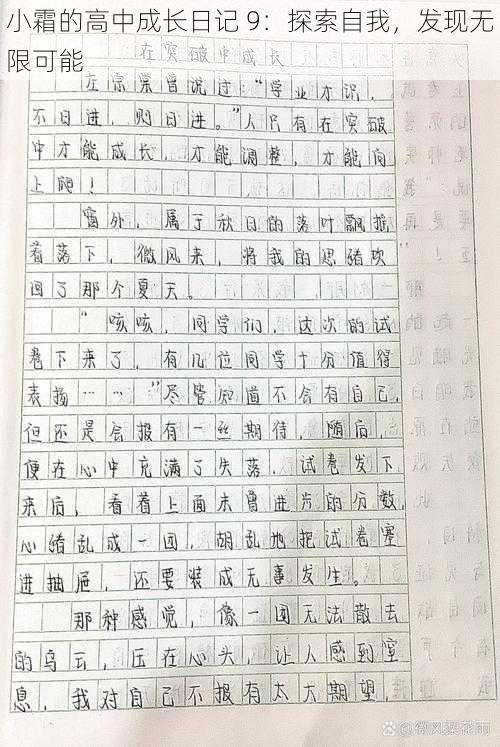 小霜的高中成长日记 9：探索自我，发现无
限可能
在突破中成长
左宗棠曾说过：“学业才识，
不日进，则日退。”人只有在突破
中才能成长，才能调整，才能向
上爬！
窗外，属于秋日的落叶飘摇
着落下，微风来，将我的思绪吹
回了那个夏天。
“咳咳，同学们，这次的试
卷下来了，有几位同学十分值得
表扬……”尽管知道不会有自己，
但还是会报有一丝期待，随后，
便在心中充满了失落，试卷发下
来后，看着上面未曾进步的分数，
心绪乱成一团，胡乱地把试卷塞
进抽屉，还要装成无事发生。
那种感觉，像一团无法散去
的乌云，压在心头，让人感到窒
息，我对自己不报有太大期望，